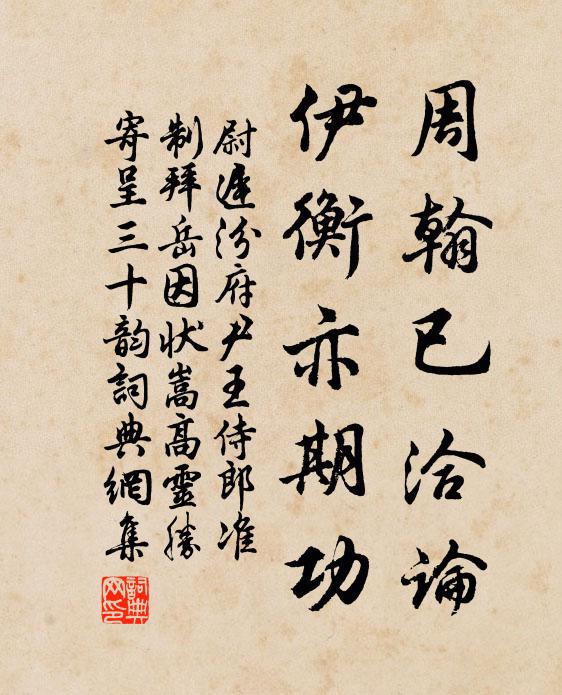 周翰已洽論
伊衡亦期功
尉遲汾府尹王侍郎准
制拜岳因狀嵩高靈勝
寄呈三十韵詞典網集
詞典網印